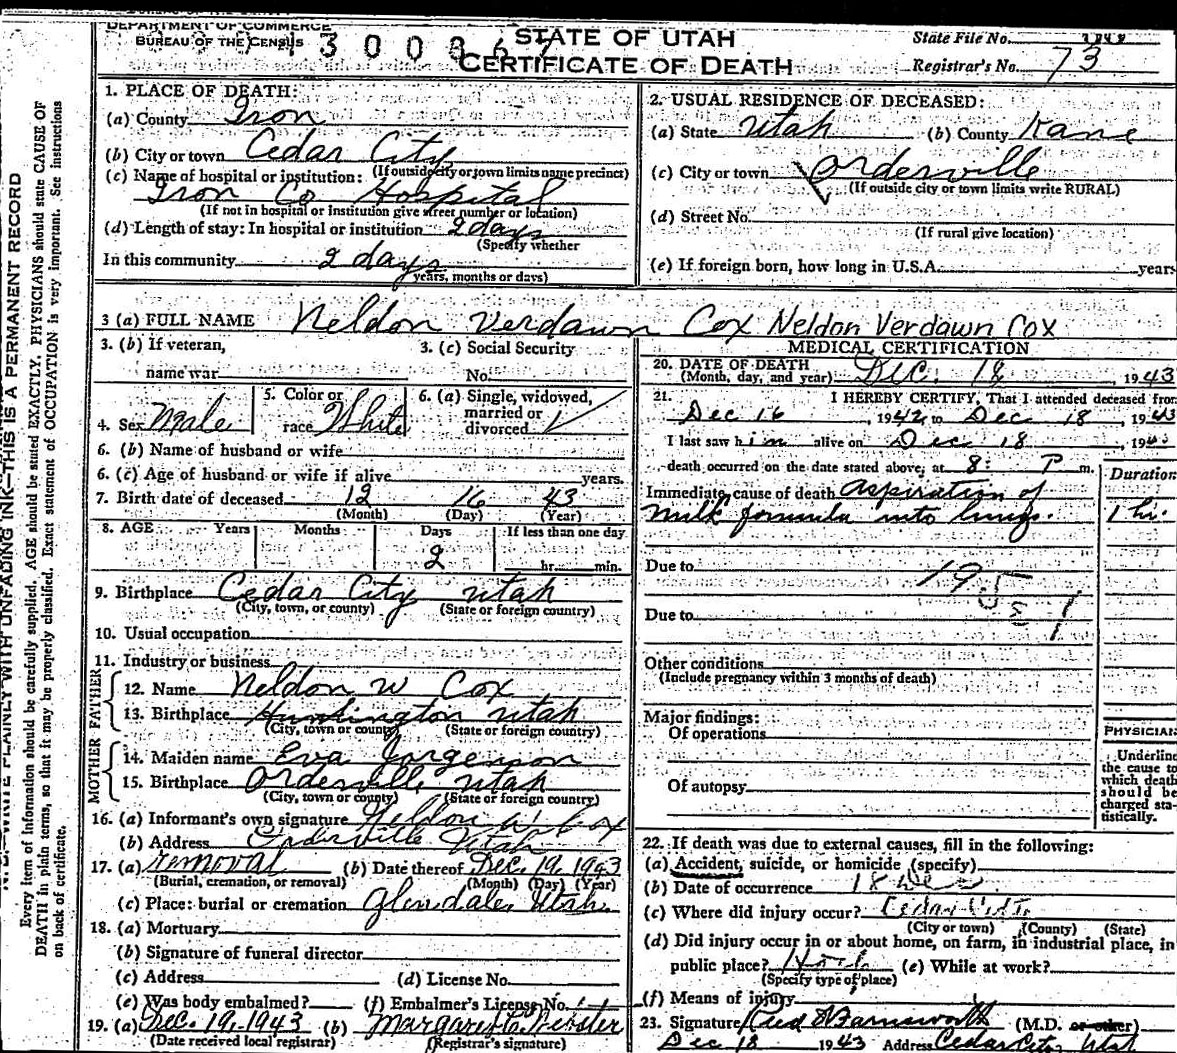 DEPARTMENT OF COMMERCE
BUREAU OF THE CENSUS
STATE OF UTAH
CERTIFICATE OF DEATH
State File No.
Registrar's No. 73
1. PLACE OF DEATH:
(a) County Iron
(b) City or town Cedar City
(If outside city or town limits name precinct)
(c) Name of hospital or institution:
Iron Co Hospital
(If not in hospital or institution give street number or location)
(d) Length of stay: In hospital or institution 2 days
(Specify whether
In this community 2 days
years, months or days)
2. USUAL RESIDENCE OF DECEASED:
(a) State Utah (b) County Kane
(c) City or town Orderville
(If outside city or town limits write RURAL)
(d) Street No.
(If rural give location)
(e) If foreign born, how long in U.S.A. years
3 (a) FULL NAME Neldon Verdawn Cox Neldon Verdawn Cox
3. (b) If veteran,
name war
3. (c) Social Security
No.
4. Sex Male
5. Color or
race White
6. (a) Single, widowed,
married or
divorced
6. (b) Name of husband or wife
6. (c) Age of husband or wife if alive years.
7. Birth date of deceased 12 16 43
(Month) (Day) (Year)
8. AGE Years Months Days If less than one day
2 hr. min.
9. Birthplace Cedar City Utah
(City, town, or county) (State or foreign country)
10. Usual occupation
11. Industry or business
FATHER
12. Name Neldon W Cox
13. Birthplace Huntington Utah
(City, town or county) (State or foreign country)
MOTHER
14. Maiden name Eva Jorgenson
15. Birthplace Orderville Utah
(City, town or county) (State or foreign country)
16. (a) Informant's own signature Neldon W Cox
(b) Address Orderville Utah
17. (a) removal (b) Date thereof Dec. 19, 1943
(Burial, cremation, or removal) (Month) (Day) (Year)
(c) Place: burial or cremation Glendale, Utah.
18. (a) Mortuary
(b) Signature of funeral director
(c) Address (d) License No.
(e) Was body embalmed? (f) Embalmer's License No.
19. (a) Dec. 19, 1943 (b) Margaret C. Webster
(Date received local registrar) (Registrar's signature)
MEDICAL CERTIFICATION
20. DATE OF DEATH
(Month, day, and year) Dec. 18, 1943
21. I HEREBY CERTIFY, That I attended deceased from
Dec 16, 1942, to Dec 18, 1943
I last saw him alive on Dec 18, 194
death occurred on the date stated above, at 8: P m.
Duration
Immediate cause of death Aspiration of
milk formula into lungs. 1 hr.
Due to
Due to
Other conditions
(Include pregnancy within 3 months of death)
Major findings:
Of operations
Of autopsy
PHYSICIAN
Underline
the cause to
which death
should be
charged sta-
tistically.
22. If death was due to external causes, fill in the following:
(a) Accident, suicide, or homicide (specify)
(b) Date of occurrence 18 Dec
(c) Where did injury occur? Cedar City
(City or town) (County) (State)
(d) Did injury occur in or about home, on farm, in industrial place, in
public place? (e) While at work?
(Specify type of place)
(f) Means of injury
23. Signature (M.D. or other)
Dec 18 1943 Address Cedar City, Utah
WRITE PLAINLY WITH UNFADING INK—THIS IS A PERMANENT RECORD
Every item of information should be carefully supplied. AGE should be stated EXACTLY. PHYSICIANS should state CAUSE OF
DEATH in plain terms, so that it may be properly classified. Exact statement of OCCUPATION is very important. See instructions
on back of certificate.